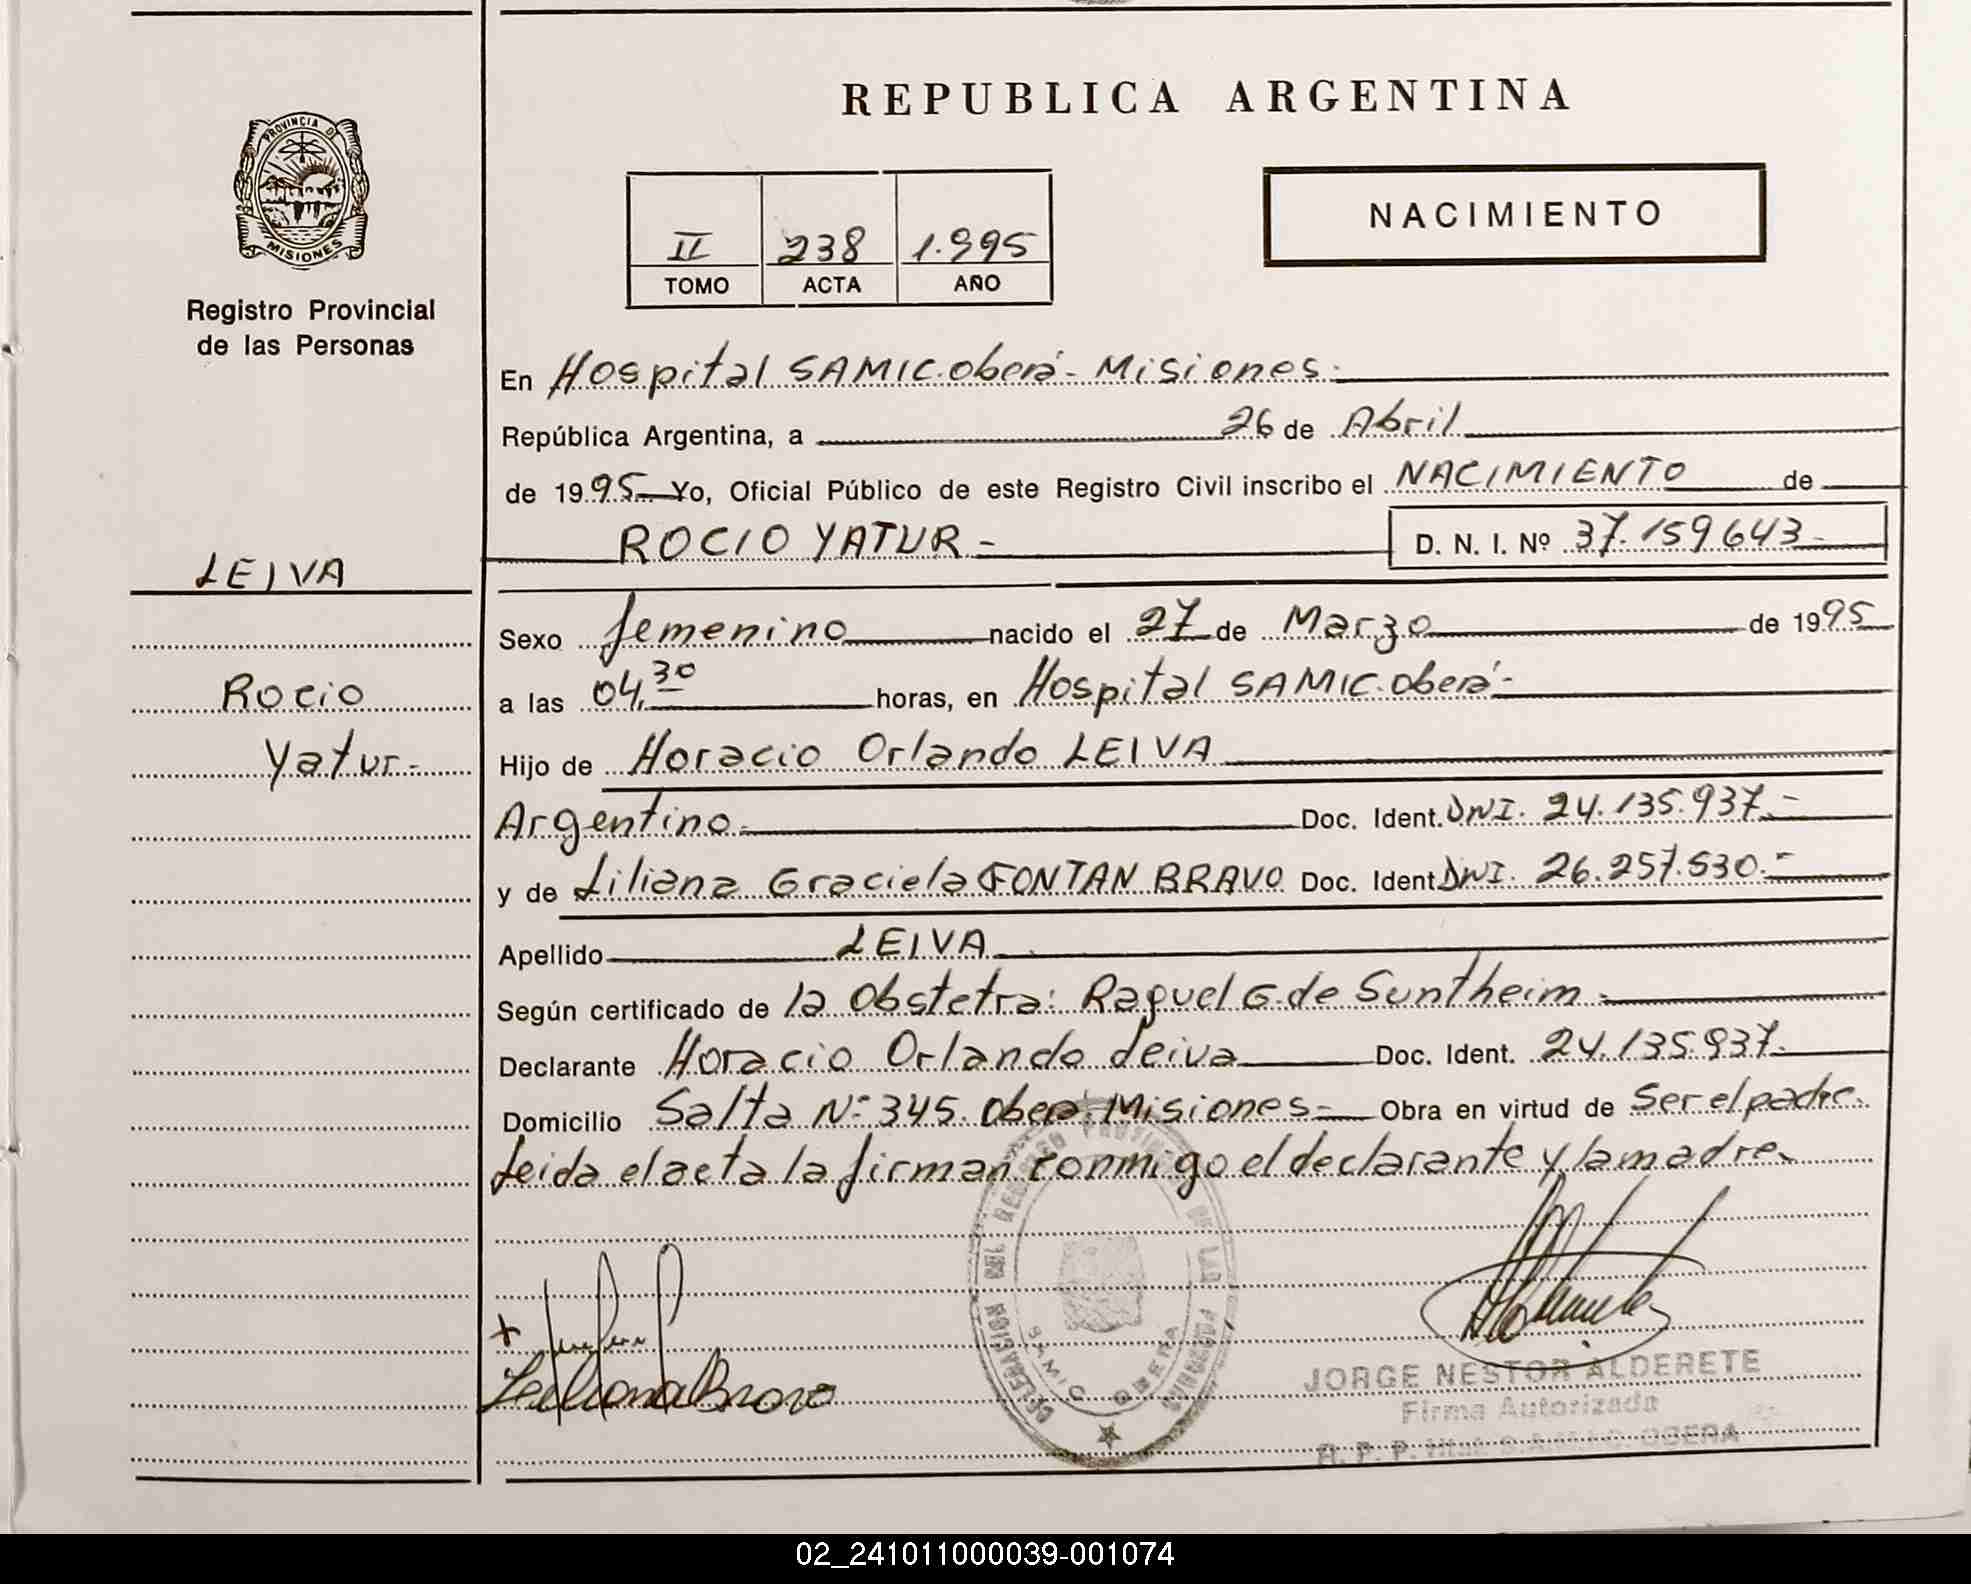 REPUBLICA ARGENTINA
PROVINCIA DE
MISIONES
Registro Provincial
de las Personas
NACIMIENTO
II 238 1.995
TOMO ACTA AÑO
En Hospital SAMIC. oberá - Misiones.
República Argentina, a 26 de Abril
de 1995 Yo, Oficial Público de este Registro Civil inscribo el NACIMIENTO de
ROCIO YATUR - D. N. I. Nº 37.159.643-
LEIVA
Rocio
Yatur-
Sexo femenino nacido el 27 de Marzo de 1995
a las 04,30 horas, en Hospital SAMIC. oberá-
Hijo de Horacio Orlando LEIVA
Argentino- Doc. Ident. DNI. 24.135.937.-
y de Liliana Graciela FONTAN BRAVO Doc. Ident DNI. 26.257.530.-
Apellido LEIVA
Según certificado de la Obstetra: Raquel G. de Suntheim.
Declarante Horacio Orlando Leiva Doc. Ident. 24.135.937.
Domicilio Salta Nº 345. Oberá. Misiones- Obra en virtud de Ser el padre.
Leida el acta la firman conmigo el declarante y la madre.
DELEGACION DEL REGISTRO PROVINCIAL DE LAS PERSONAS
SAMIC OBERA
Liliana Bravo
JORGE NESTOR ALDERETE
Firma Autorizada
R. P. P. Htal. S.A.M.I.C. OBERA
02_241011000039-001074